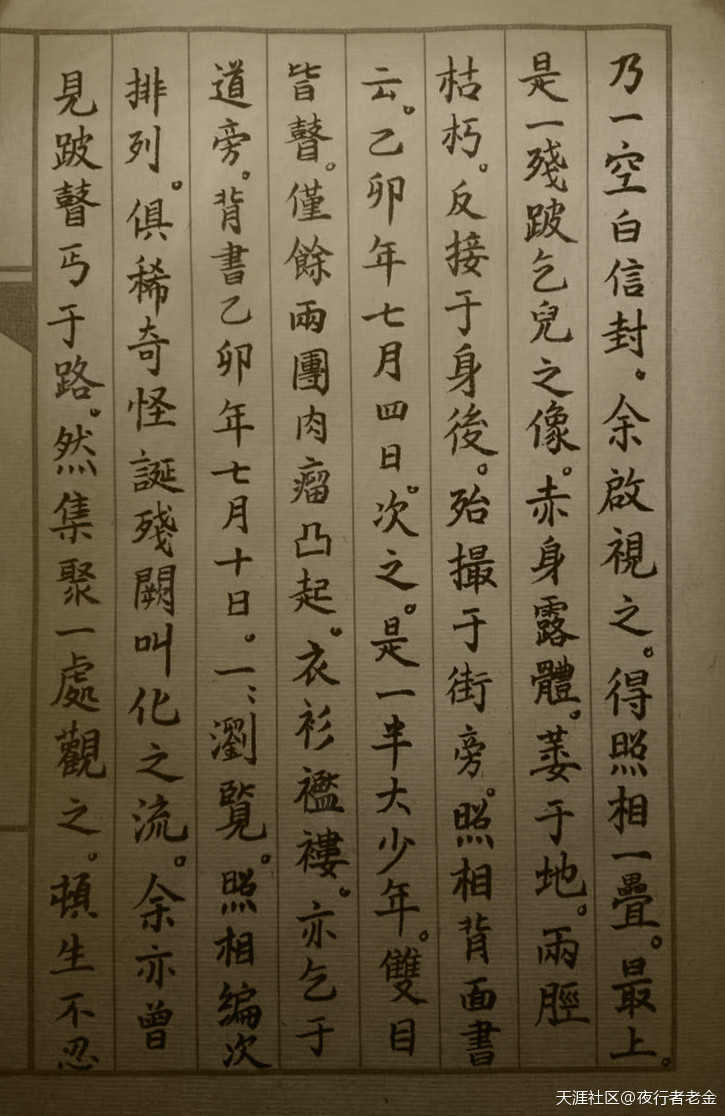 乃一空白信封。余啟視之。得照相一疊。最上。
是一殘跛乞兒之像。赤身露體。萎于地。兩脛
枯朽。反接于身後。殆撮于街旁。照相背面書
云。乙卯年七月四日。次之。是一半大少年。雙目
皆瞽。僅餘兩團肉瘤凸起。衣衫襤褸。亦乞于
道旁。背書乙卯年七月十日。一〻瀏覽。照相編次
排列。俱稀奇怪誕殘闕叫化之流。余亦曾
見跛瞽丐于路。然集聚一處觀之。頓生不忍
天涯社区@夜行者老金